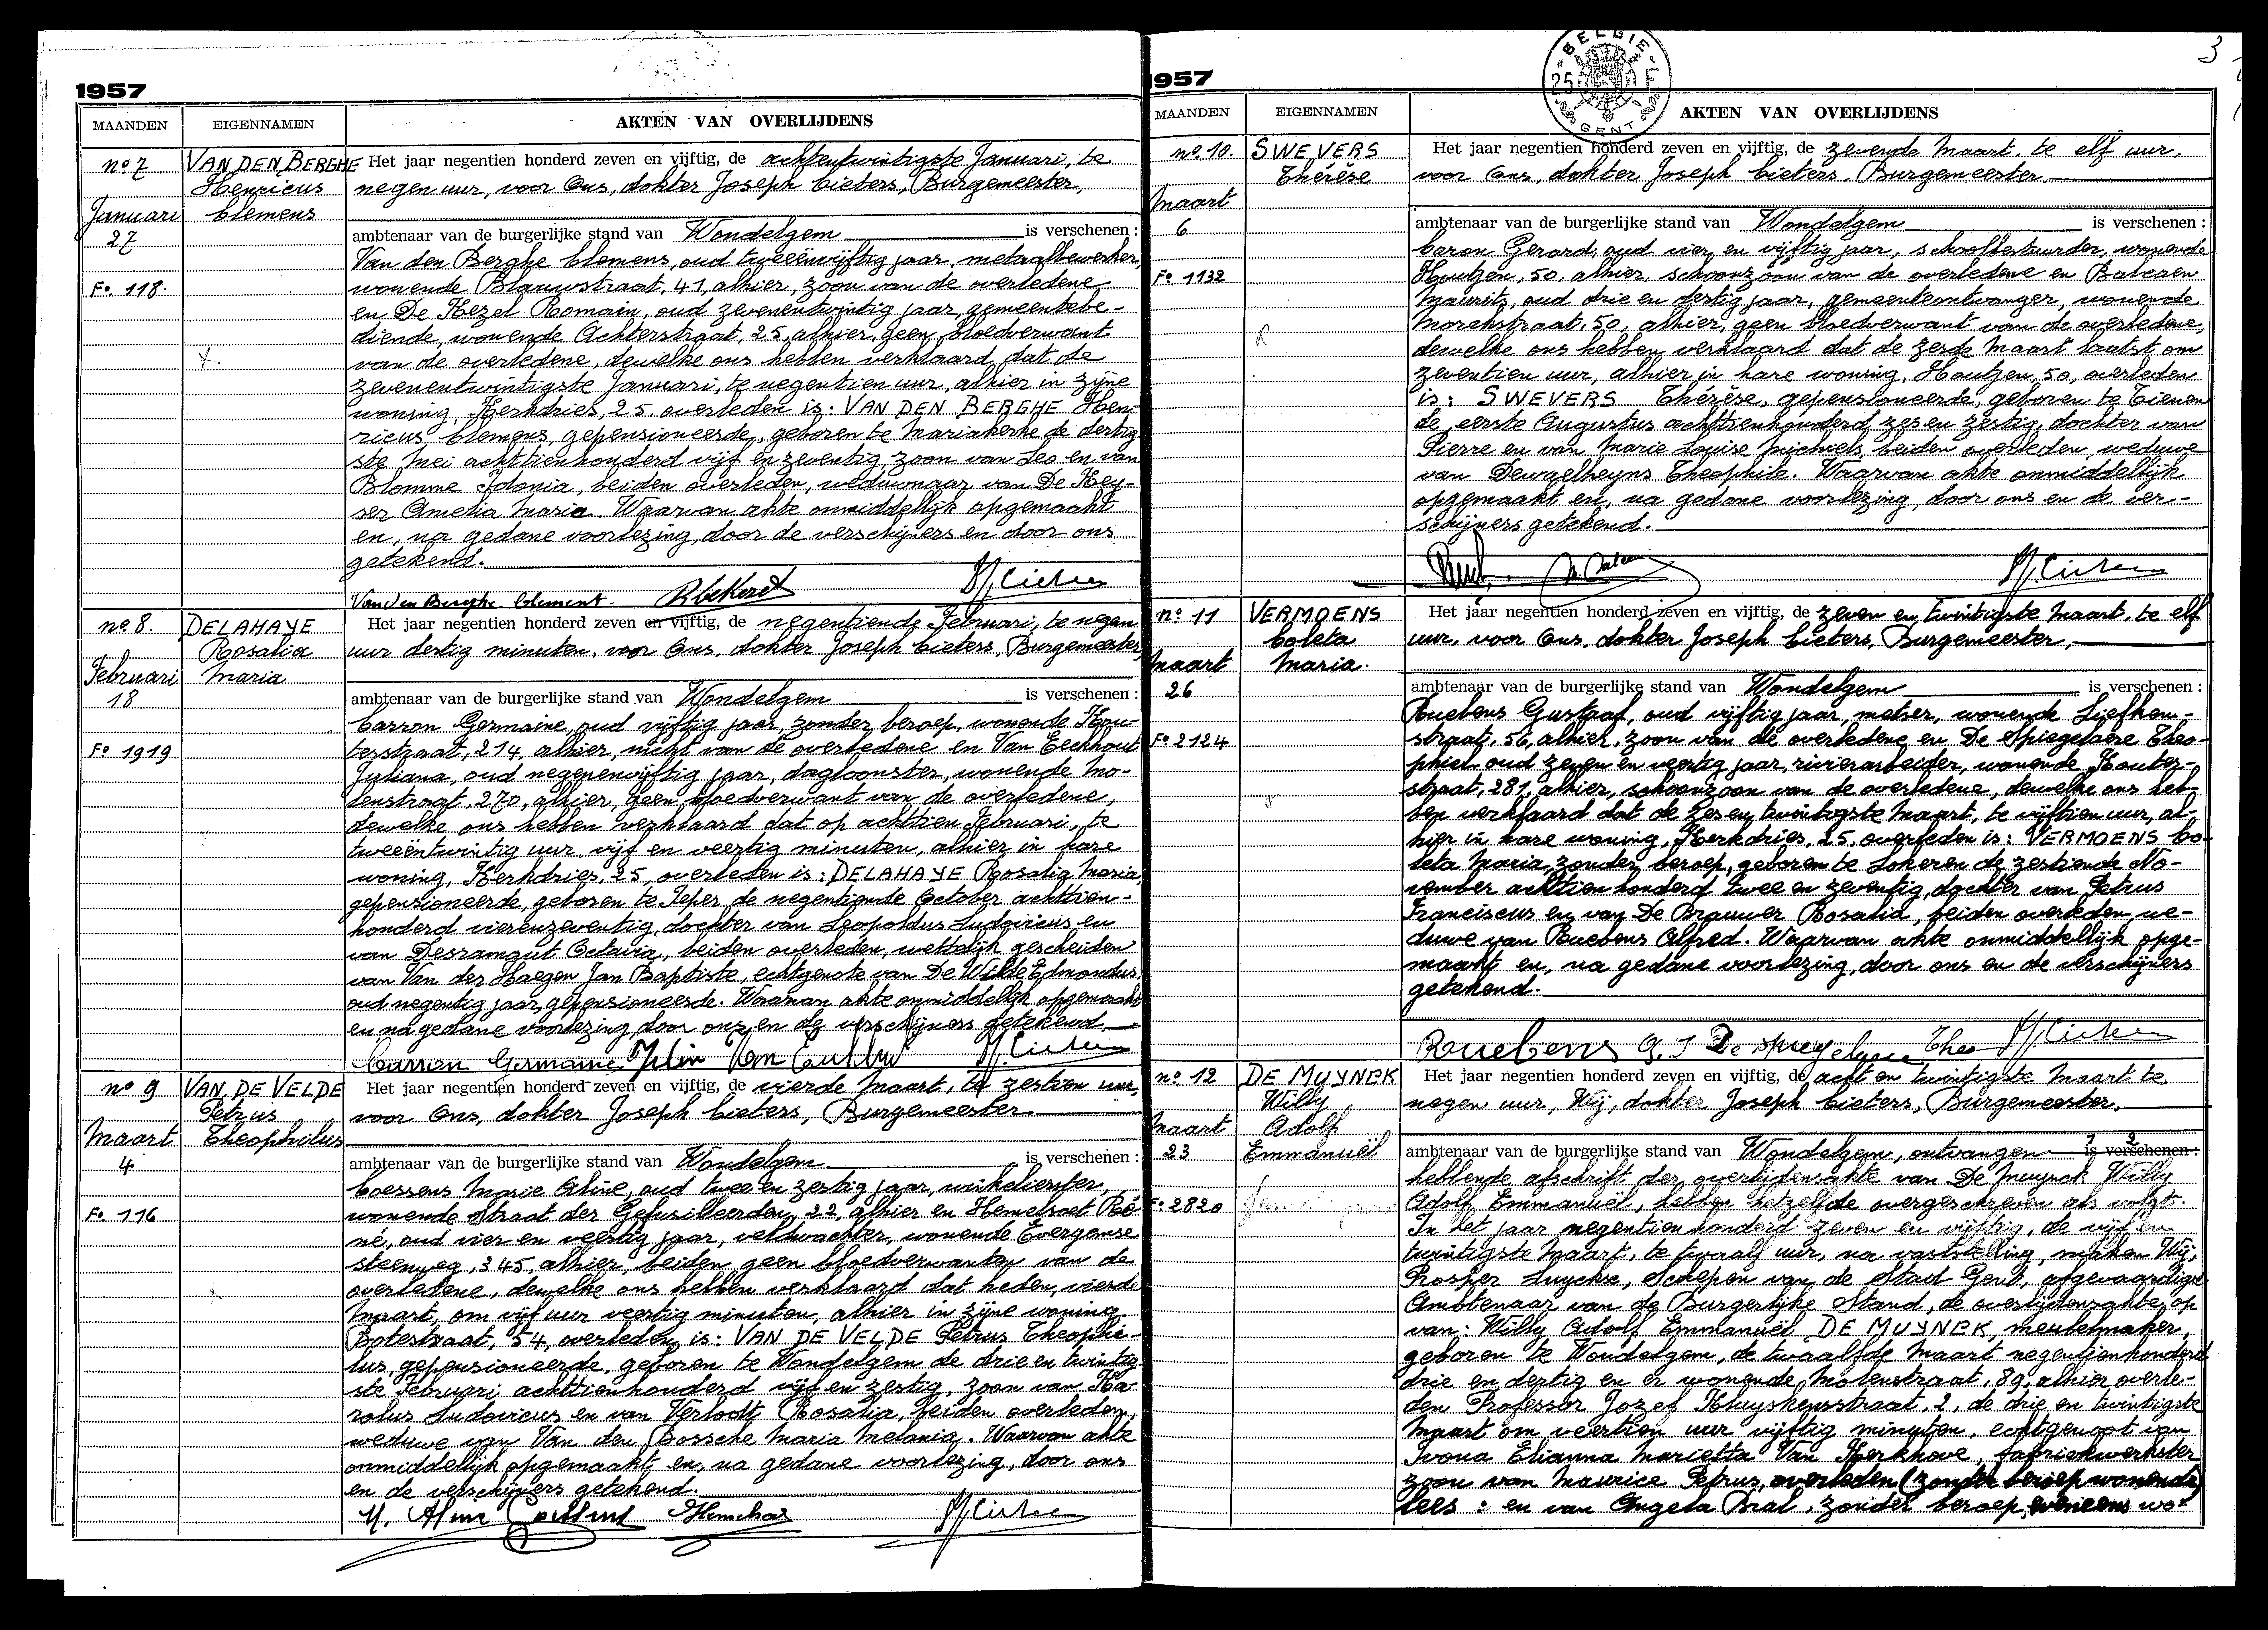 1957
MAANDEN EIGENNAMEN AKTEN VAN OVERLIJDENS
no 7
Januari
27
Fo. 118.
VAN DEN BERGHE
Henricus
Clemens
Het jaar negentien honderd zeven en vijftig, de achtentwintigste Januari, te
negen uur, voor Ons, dokter Joseph Cieters, Burgemeester,
ambtenaar van de burgerlijke stand van Wondelgem is verschenen :
Van den Berghe Clemens, oud tweeënvijftig jaar, metaalbewerker,
wonende Blauwstraat, 41, alhier, zoon van de overledene
en De Kezel Romain, oud zevenentwintig jaar, gemeentebe-
diende, wonende Achterstraat, 25, alhier, geen bloedverwant
van de overledene, dewelke ons hebben verklaard, dat de
zevenentwintigste Januari, te negentien uur, alhier in zijne
woning, Kerkdries, 25, overleden is: VAN DEN BERGHE Hen-
ricus, Clemens, gepensioneerde, geboren te Mariakerke de dertig-
ste Mei achttienhonderd vijf en zeventig, zoon van Leo en van
Blomme Idonia, beiden overleden, weduwnaar van De Key-
ser Amelia Maria. Waarvan akte onmiddellijk opgemaakt
en, na gedane voorlezing, door de verschijners en door ons
getekend.
Van den Berghe Clement.
no 8.
Februari
18
Fo 1919
DELAHAYE
Rosalia
Maria
Het jaar negentien honderd zeven en vijftig, de negentiende Februari, te negen
uur dertig minuten, voor Ons, dokter Joseph Cieters, Burgemeester,
ambtenaar van de burgerlijke stand van Wondelgem is verschenen :
Carron Germaine, oud vijftig jaar, zonder beroep, wonende Kou-
tesstraat, 214, alhier, nicht van de overledene en Van Eeckhout
Juliana, oud negenenvijftig jaar, dagloonster, wonende Mo-
lenstraat, 270, alhier, geen bloedverwant van de overledene,
dewelke ons hebben verklaard dat op achttien Februari, te
tweeëntwintig uur vijf en veertig minuten, alhier in hare
woning, Kerkdries, 25, overleden is: DELAHAYE Rosalia Maria,
gepensioneerde, geboren te Ieper, de negentiende October achttien-
honderd vierenzeventig, dochter van Leopoldus Ludovicus en
van Desramaut Octavia, beiden overleden, wettelijk gescheiden
van Van der Haegen Jan Baptiste, echtgenote van De Wilde Edmondus,
oud negentig jaar, gepensioneerde. Waarvan akte onmiddellijk opgemaakt
en na gedane voorlezing door ons en de verschijners getekend.
Carron Germaine
no 9
Maart
4
Fo. 116
VAN DE VELDE
Petrus
Theophilus
Het jaar negentien honderd zeven en vijftig, de vierde Maart, te zestien uur,
voor Ons, dokter Joseph Cieters, Burgemeester
ambtenaar van de burgerlijke stand van Wondelgem is verschenen :
Coessens Marie Aline, oud twee en zestig jaar, winkelierster,
wonende Straat der Gefusilleerden, 22, alhier en Hemelsoet Ré-
né, oud vier en veertig jaar, veldwachter, wonende Evergemse
steenweg, 345, alhier, beiden geen bloedverwanten van de
overledene, dewelke ons hebben verklaard dat heden, vierde
Maart, om vijf uur veertig minuten, alhier in zijne woning
Botestraat, 54, overleden is: VAN DE VELDE Petrus Theophi-
lus, gepensioneerde, geboren te Wondelgem de drie en twintig-
ste Februari achttienhonderd vijf en zestig, zoon van Ka-
rolus Ludovicus en van Verlodt Rosalia, beiden overleden,
weduwe van Van den Bossche Maria Melania. Waarvan akte
onmiddellijk opgemaakt en, na gedane voorlezing, door ons
en de verschijners getekend.
3
1957
BELGIE 25 F GENT
MAANDEN EIGENNAMEN AKTEN VAN OVERLIJDENS
no 10.
Maart
6
Fo 1132
SWEVERS
Thérèse
Het jaar negentien honderd zeven en vijftig, de zevende Maart, te elf uur,
voor Ons, dokter Joseph Cieters, Burgemeester.
ambtenaar van de burgerlijke stand van Wondelgem is verschenen :
Caron Gerard, oud vier en vijftig jaar, schoolbestuurder, wonende
Houtjen, 50, alhier, schoonzoon van de overledene en Balcaen
Maurits, oud drie en dertig jaar, gemeenteontvanger, wonende
Morekstraat, 50, alhier, geen bloedverwant van de overledene,
dewelke ons hebben verklaard dat de zesde Maart laatst om
zeventien uur, alhier in hare woning, Houtjen, 50, overleden
is: SWEVERS Thérèse, gepensioneerde, geboren te Tienen
de eerste Augustus achttienhonderd zes en zestig, dochter van
Pierre en van Marie Louise Michiels, beiden overleden, weduwe
van Dewgelheyns Theophile. Waarvan akte onmiddellijk
opgemaakt en, na gedane voorlezing, door ons en de ver-
schijners getekend.
no 11
Maart
26
Fo 2124
VERMOENS
Coleta
Maria.
Het jaar negentien honderd zeven en vijftig, de zeven en twintigste Maart, te elf
uur, voor Ons, dokter Joseph Cieters, Burgemeester,
ambtenaar van de burgerlijke stand van Wondelgem is verschenen :
Ruebens Gustaaf, oud vijftig jaar, metser, wonende Liefken-
straat, 56, alhier, zoon van de overledene en De Spiegelaere Theo-
phiel oud zeven en veertig jaar, rivierarbeider, wonende Kouter-
straat, 281, alhier, schoonzoon van de overledene, dewelke ons heb-
ben verklaard dat de zes en twintigste Maart, te vijftien uur, al-
hier in hare woning, Kerkdries, 25, overleden is: VERMOENS Co-
leta Maria, zonder beroep, geboren te Lokeren de zestiende No-
vember achttienhonderd twee en zeventig, dochter van Petrus
Franciscus en van De Brauwer Rosalia, beiden overleden, we-
duwe van Ruebens Alfred. Waarvan akte onmiddellijk opge-
maakt en, na gedane voorlezing, door ons en de verschijners
getekend.
Ruebens G.
no 12
Maart
23
Fo 2820
DE MUYNCK
Willy
Adolf
Emmanuël
Het jaar negentien honderd zeven en vijftig, de acht en twintigste Maart te
negen uur, Wij, dokter Joseph Cieters, Burgemeester,
ambtenaar van de burgerlijke stand van Wondelgem, ontvangen is verschenen :
hebbende afschrift der overlijdensakte van De Muynck Willy
Adolf Emmanuël, hebben hetzelfde overgeschreven als volgt:
In het jaar negentienhonderd zeven en vijftig, de vijf en
twintigste Maart, te twaalf uur, na vaststelling, maken Wij,
Prosper Luyckse, Schepen van de Stad Gent, afgevaardigd
Ambtenaar van de Burgerlijke Stand, de overlijdensakte op
van: Willy Adolf Emmanuël DE MUYNCK, meubelmaker,
geboren te Wondelgem, de twaalfde Maart negentienhonderd
drie en dertig en er wonende, Molenstraat, 89, alhier overle-
den Professor Jozef Kluyskensstraat, 2, de drie en twintigste
Maart om veertien uur vijftig minuten, echtgenoot van
Ivona Elianna Marietta Van Kerkhove, fabriekwerkster
zoon van Maurice Petrus, overleden (zonder beroep wonende)
lees : en van Angela Bral, zonder beroep, eveneens wo-